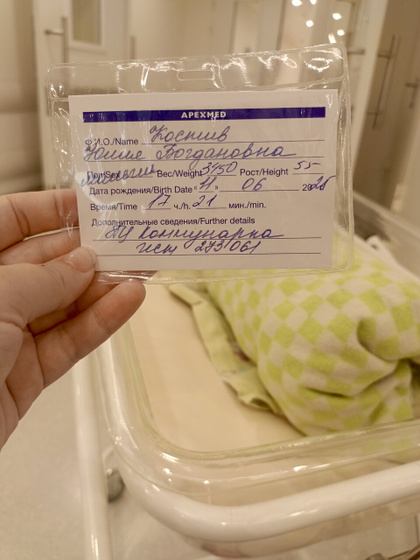 APEXMED
Ф.И.О./Name Костив
Юлия Богдановна
Пол/Sex Вес/Weight 3450 Рост/Height 55
Дата рождения/Birth Date " 11 " 06 2025
Время/Time 17 ч./h. 21 мин./min.
Дополнительные сведения/Further details
Коммунарка
273/061